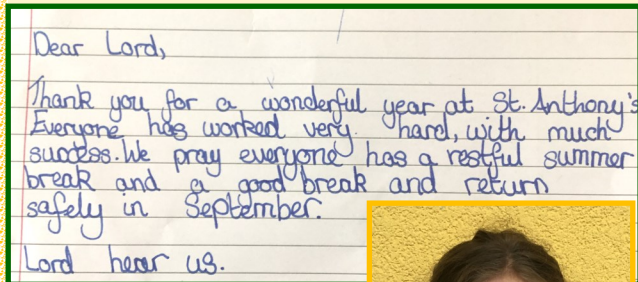 Dear Lord,
Thank you for a wonderful year at St. Anthony's
Everyone has worked very hard, with much
success. We pray everyone has a restful summer
break and a good break and return
safely in September.
Lord hear us.